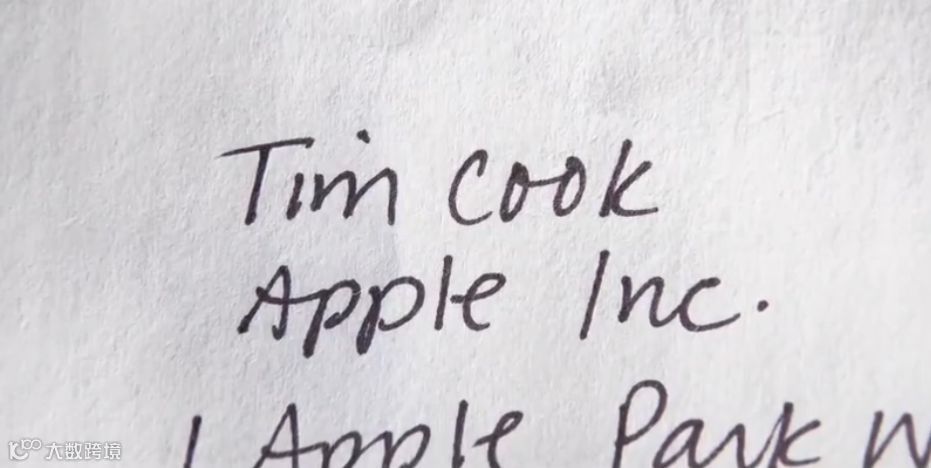 Tim Cook
Apple Inc.
1 Apple Park
大数跨境